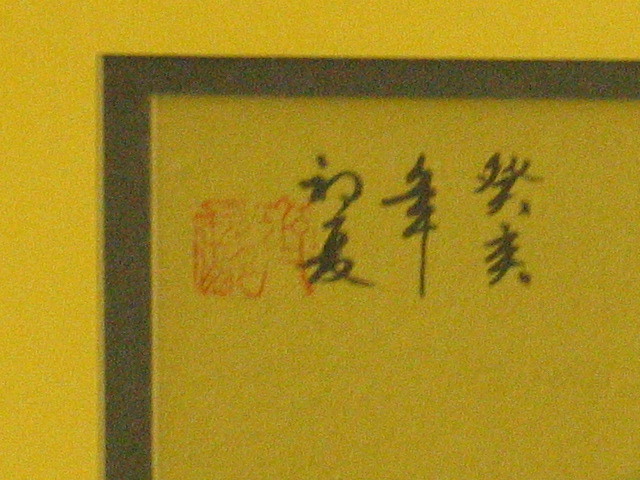 癸亥
年
初夏